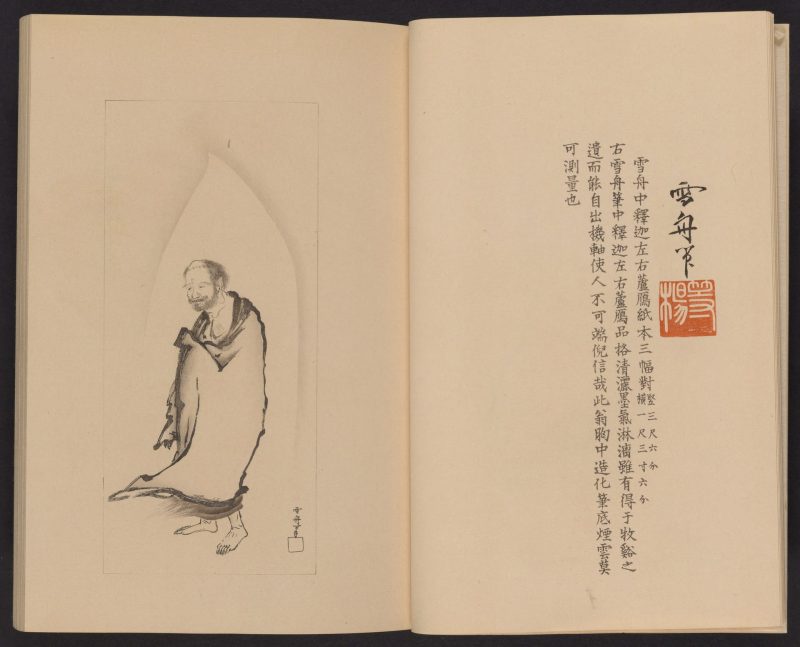 雪舟筆
等楊
雪舟中釋迦左右蘆鴈紙本三幅對竪三尺六分横一尺三寸六分
右雪舟筆中釋迦左右蘆鴈品格清灑墨氣淋漓雖有得于牧谿之
遺而能自出機軸使人不可端倪信哉此翁胸中造化筆底煙雲莫
可測量也
雪舟筆